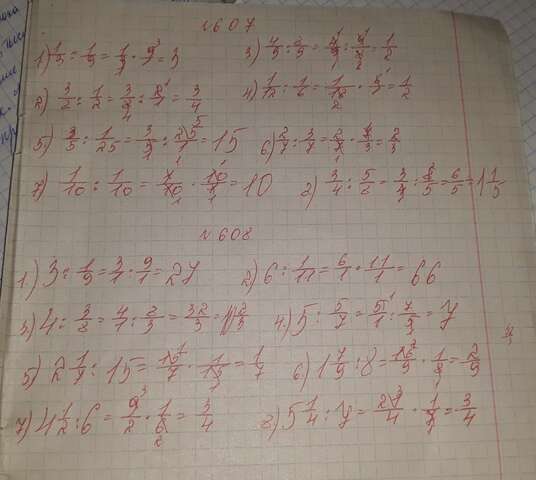 № 607
1) 1/3 : 1/9 = 1/3 · 9/1 = 3 3) 4/5 : 8/5 = 4/5 · 5/8 = 1/2
2) 3/8 : 1/2 = 3/8 · 2/1 = 3/4 4) 1/12 : 1/6 = 1/12 · 6/1 = 1/2
5) 3/5 : 1/25 = 3/5 · 25/1 = 15 6) 2/7 : 3/7 = 2/7 · 7/3 = 2/3
7) 1/10 : 1/10 = = 10 8) 3/4 : 5/8 = 3/4 · 8/5 = 6/5 = 1 1/5
№ 608
1) 3 : 1/9 = 3/1 · 9/1 = 27 2) 6 : 1/11 = 6/1 · 11/1 = 66
3) 4 : 3/8 = 4/1 · 8/3 = 32/3 = 4) 5 : 5/7 = 5/1 · 7/5 = 7
5) 2 1/7 : 15 = 15/7 · 1/15 = 1/7 6) 1 7/9 : 8 = 16/9 · 1/8 = 2/9
7) 4 1/2 : 6 = 9/2 · 1/6 = 3/4 8) 5 1/4 : 7 = 21/4 · 1/7 = 3/4